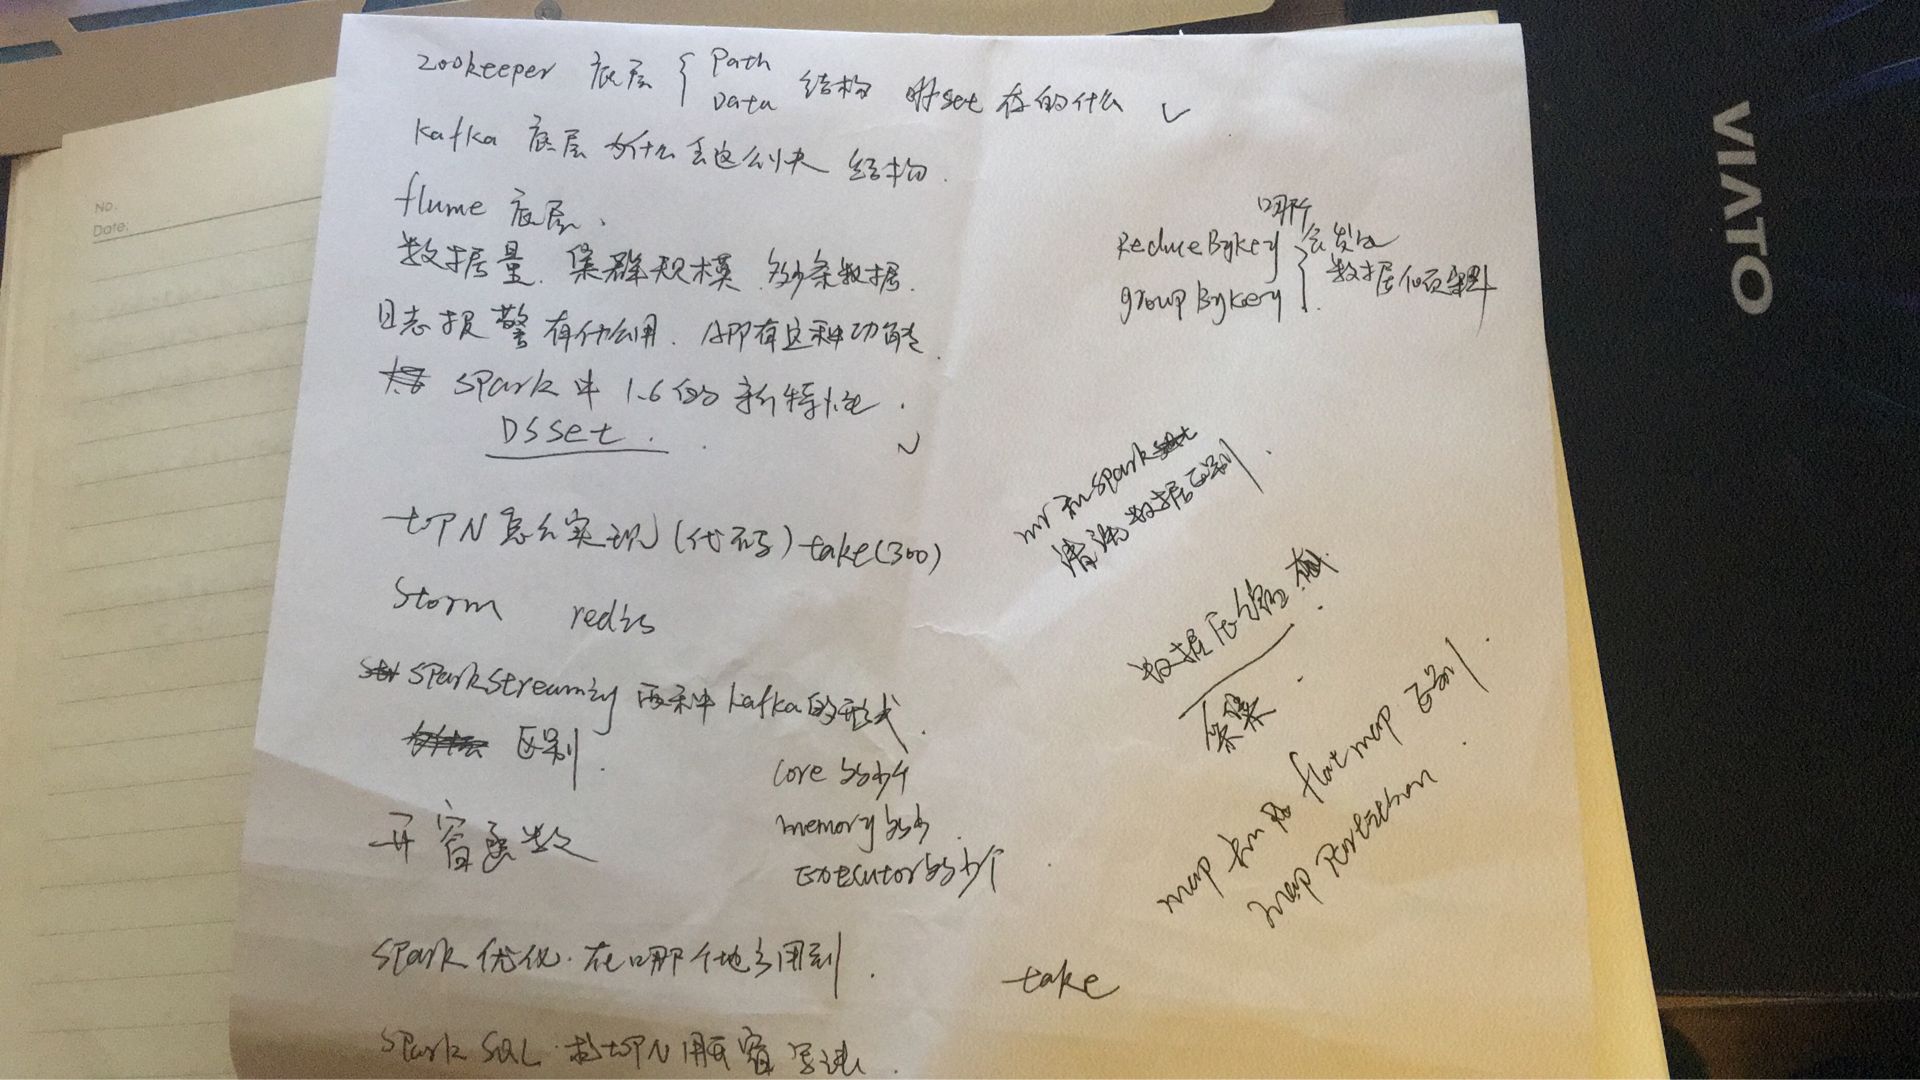 zookeeper 底层 { Path Data 结构 offset 存的什么 ✓
kafka 底层 为什么这么快 结构.
flume 底层.
数据量. 集群规模. 多少条数据.
日志报警有什么用. APP有这种功能.
spark 中 1.6的 新特性.
DSset.
topN 怎么实现 (代码) take(300)
Storm redis
sparkstreaming 两种 kafka的形式.
区别.
core 多少个
memory 多少.
executor多少个.
开窗函数
spark 优化. 在哪个地方用到.
spark SQL. 把topN 用开窗 写
No.
Date:
哪个
ReduceByKey
groupByKey
会发生
数据倾斜
mr 和 spark
清洗数据区别.
数据压缩
答案
map 和 flatmap 区别.
map Partition
take
VIATO